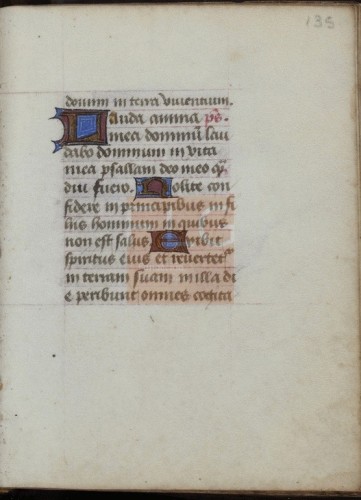 135
domini in terra viventium.
Lauda anima ps.
mea dominu lau
dabo dominum in vita
mea psallam deo meo q̃
diu fuero. Nolite con
fidere in principibus in fi
liis hominum in quibus
non est salus. Exibit
spiritus eius et revertet
in terram suam in illa di
e peribunt omnes cogita